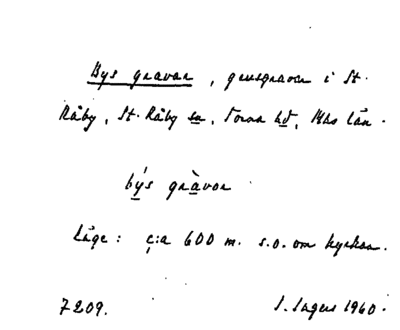 Bys gravar, grusgravar i St.
Råby, St. Råby sn, Torna hd, Mhs län.
býs gràvar
Läge: c:a 600 m. s.o. om kyrkan.
7209. I. Ingers 1960.